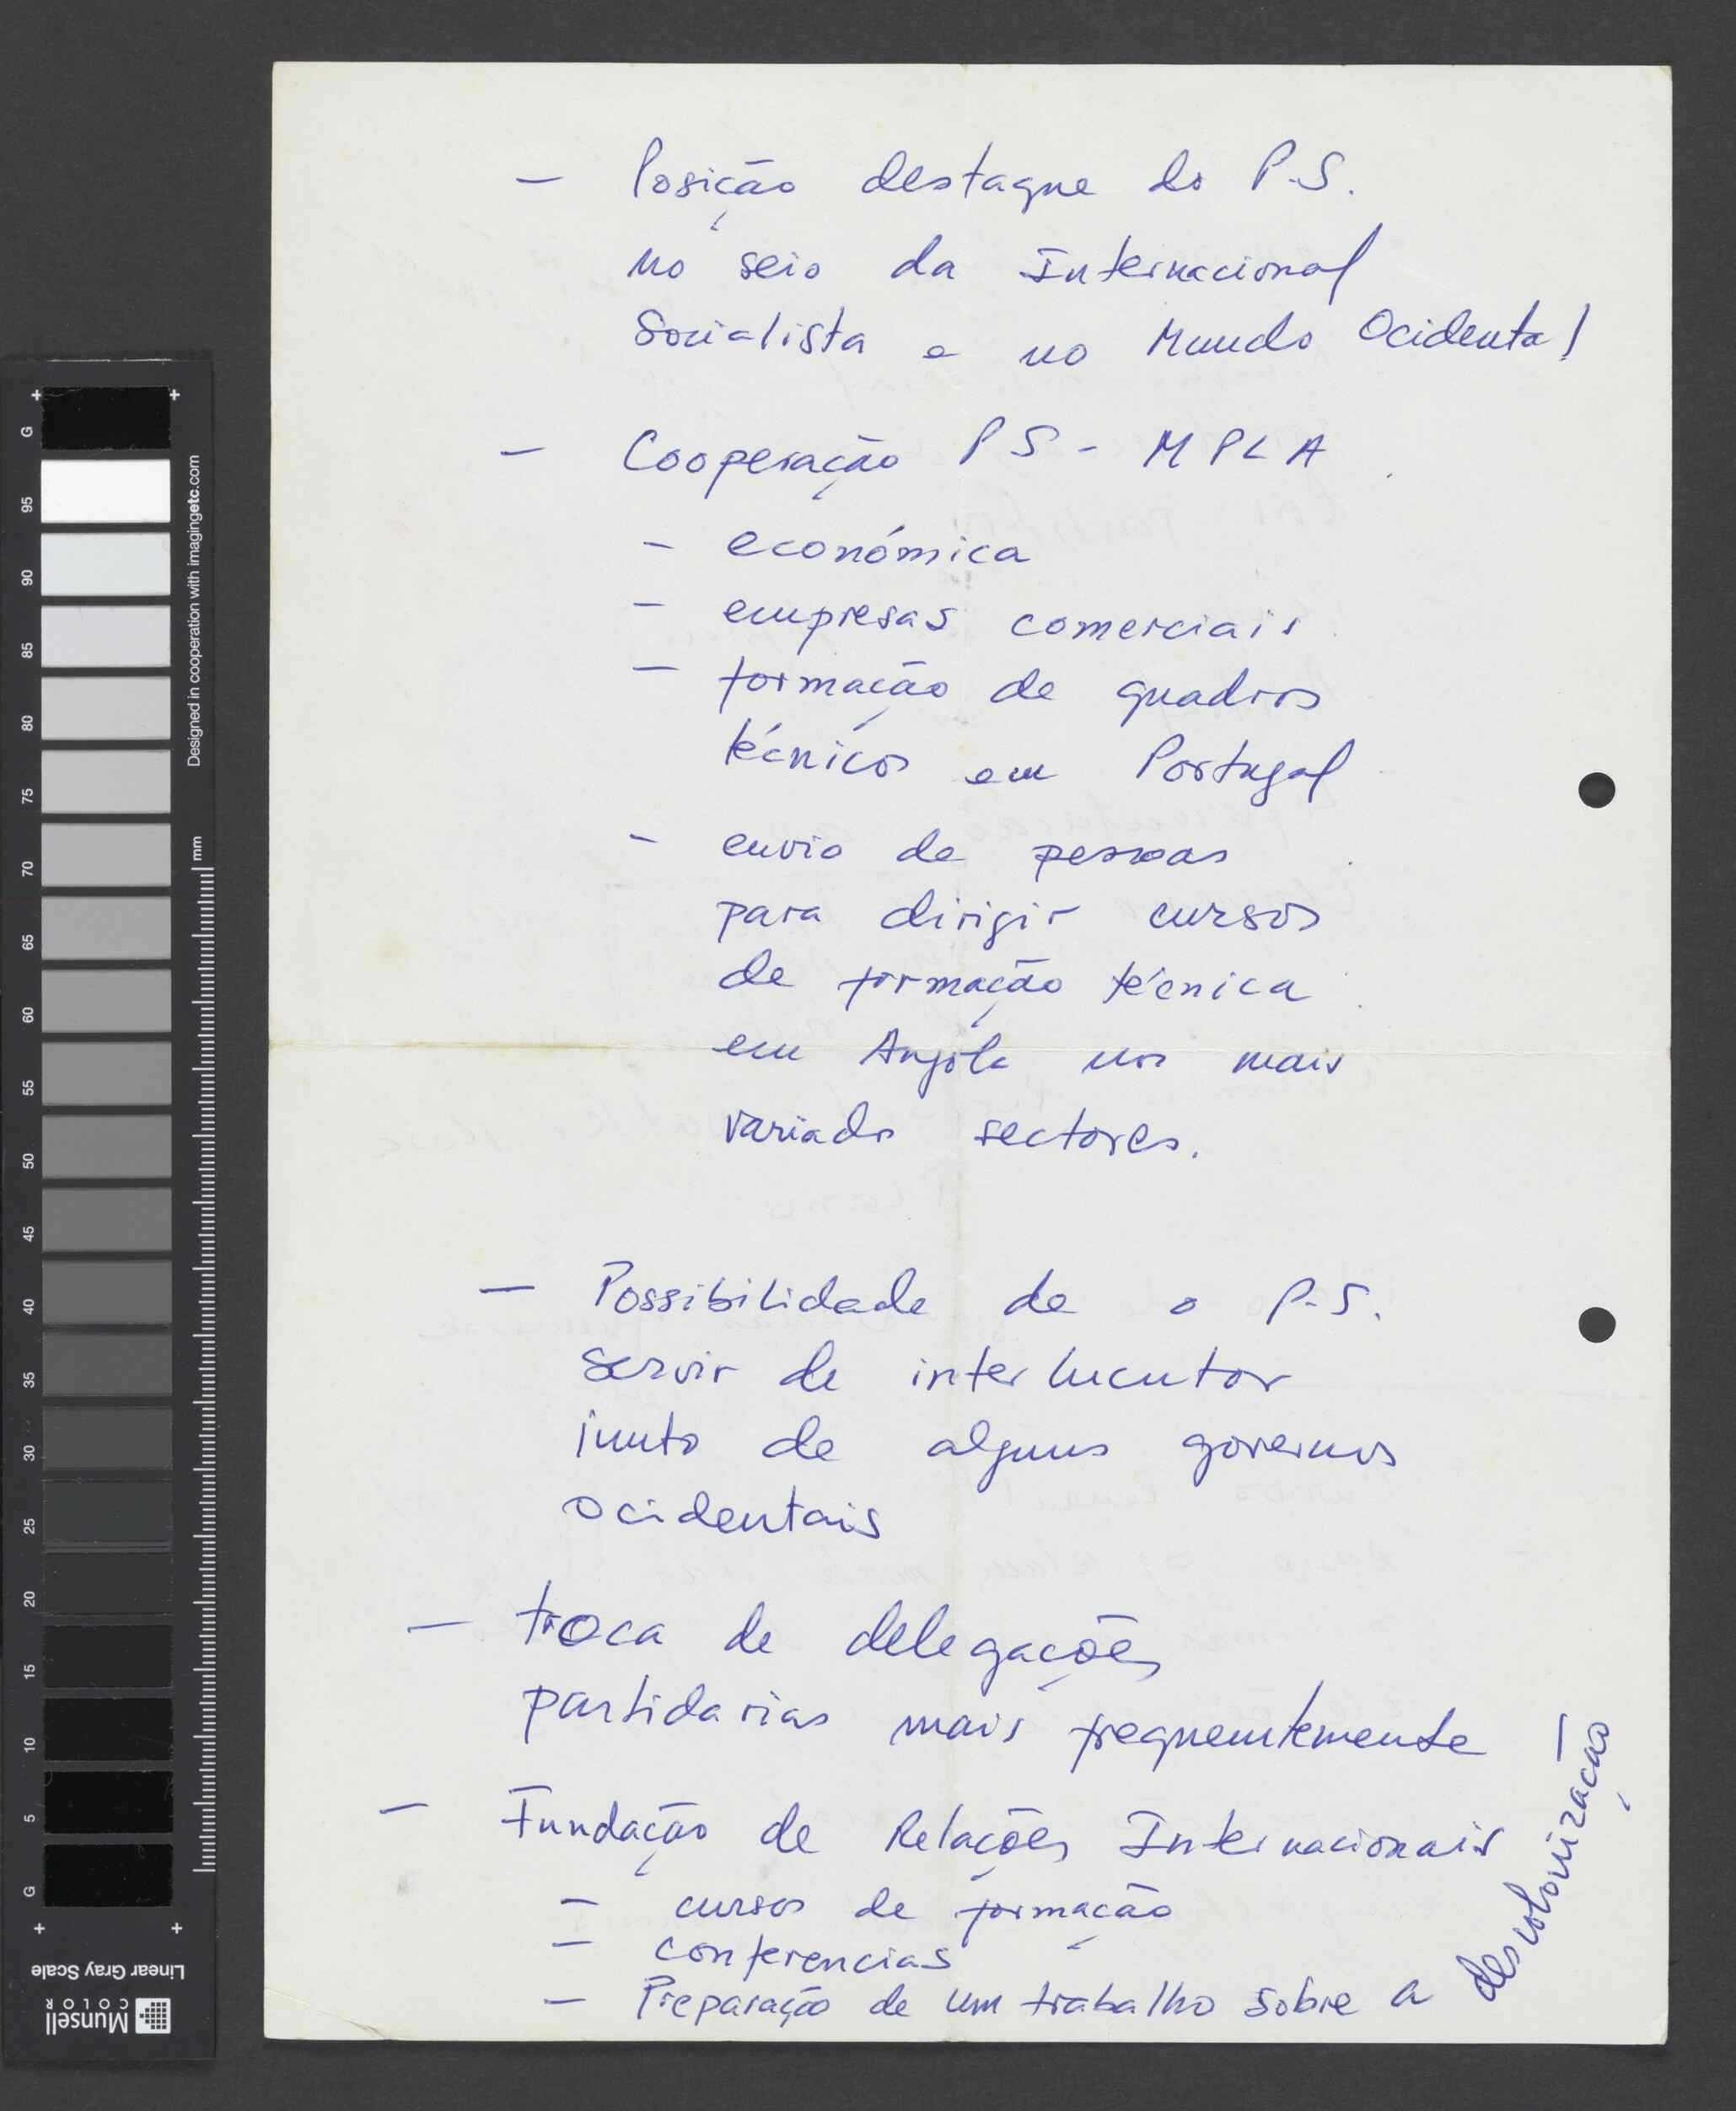 - Posição destaque do P.S.
no seio da Internacional
Socialista e no Mundo Ocidental
- Cooperação PS - MPLA
- económica
- empresas comerciais
- formação de quadros
técnicos em Portugal
- envio de pessoas
para dirigir cursos
de formação técnica
em Angola nos mais
variados sectores.
- Possibilidade de o P.S.
servir de interlucutor
junto de alguns governos
ocidentais
- troca de delegações
partidarias mais frequentemente
- Fundação de Relações Internacionais
- cursos de formação
- conferencias
- Preparação de um trabalho sobre a descolonização
G
95
90
85
80
75
70
65
60
55
50
45
40
35
30
25
20
15
10
5
G
Designed in cooperation with imagingetc.com
mm
Linear Gray Scale
Munsell
COLOR